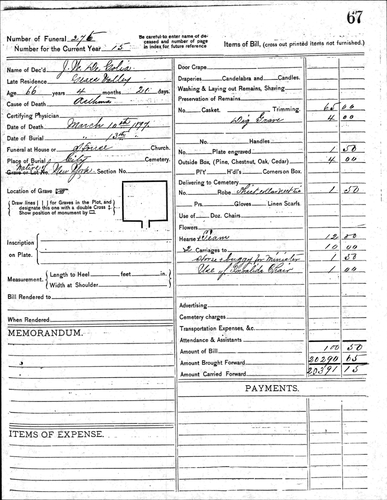 67
Number of Funeral 276
Number for the Current Year 15
Be careful to enter name of deceased and number of page in index for future reference
Items of Bill, (cross out printed items not furnished.)
Name of Dec'd J. W.
Late Residence Grass Valley
Age 66 years 4 months 20 days
Cause of Death Asthma
Certifying Physician
Date of Death March 10th 1897
Date of Burial " 13th "
Funeral at House or Office
Place of Burial City Cemetery.
Native of New York Section No.
Location of Grave
Draw lines for Graves in the Plot, and designate this one with a double Cross
Show position of monument by
Inscription on Plate.
Measurement. Length to Heel feet in.
Width at Shoulder
Bill Rendered to
When Rendered
MEMORANDUM.
ITEMS OF EXPENSE.
Door Crape
Draperies Candelabra and Candles.
Washing & Laying out Remains, Shaving
Preservation of Remains
No. Casket. Trimming. 65 00
Dig Grave 4 00
No. Handles
No. Plate engraved 1 50
Outside Box, (Pine, Chestnut, Oak, Cedar) 4 00
P'l'y H'd'l's Corners on Box
Delivering to Cemetery
No. Robe 1 50
Prs. Gloves Linen Scarfs
Use of Doz. Chairs
Flowers
Hearse & Team 12 00
2 Carriages to 10 00
Horse & buggy for Minister 1 50
Use of Chair 1 00
Advertising
Cemetery charges
Transportation Expenses, &c.
Attendance & Assistants
Amount of Bill 100 50
Amount Brought Forward 20290 65
Amount Carried Forward 20391 15
PAYMENTS.